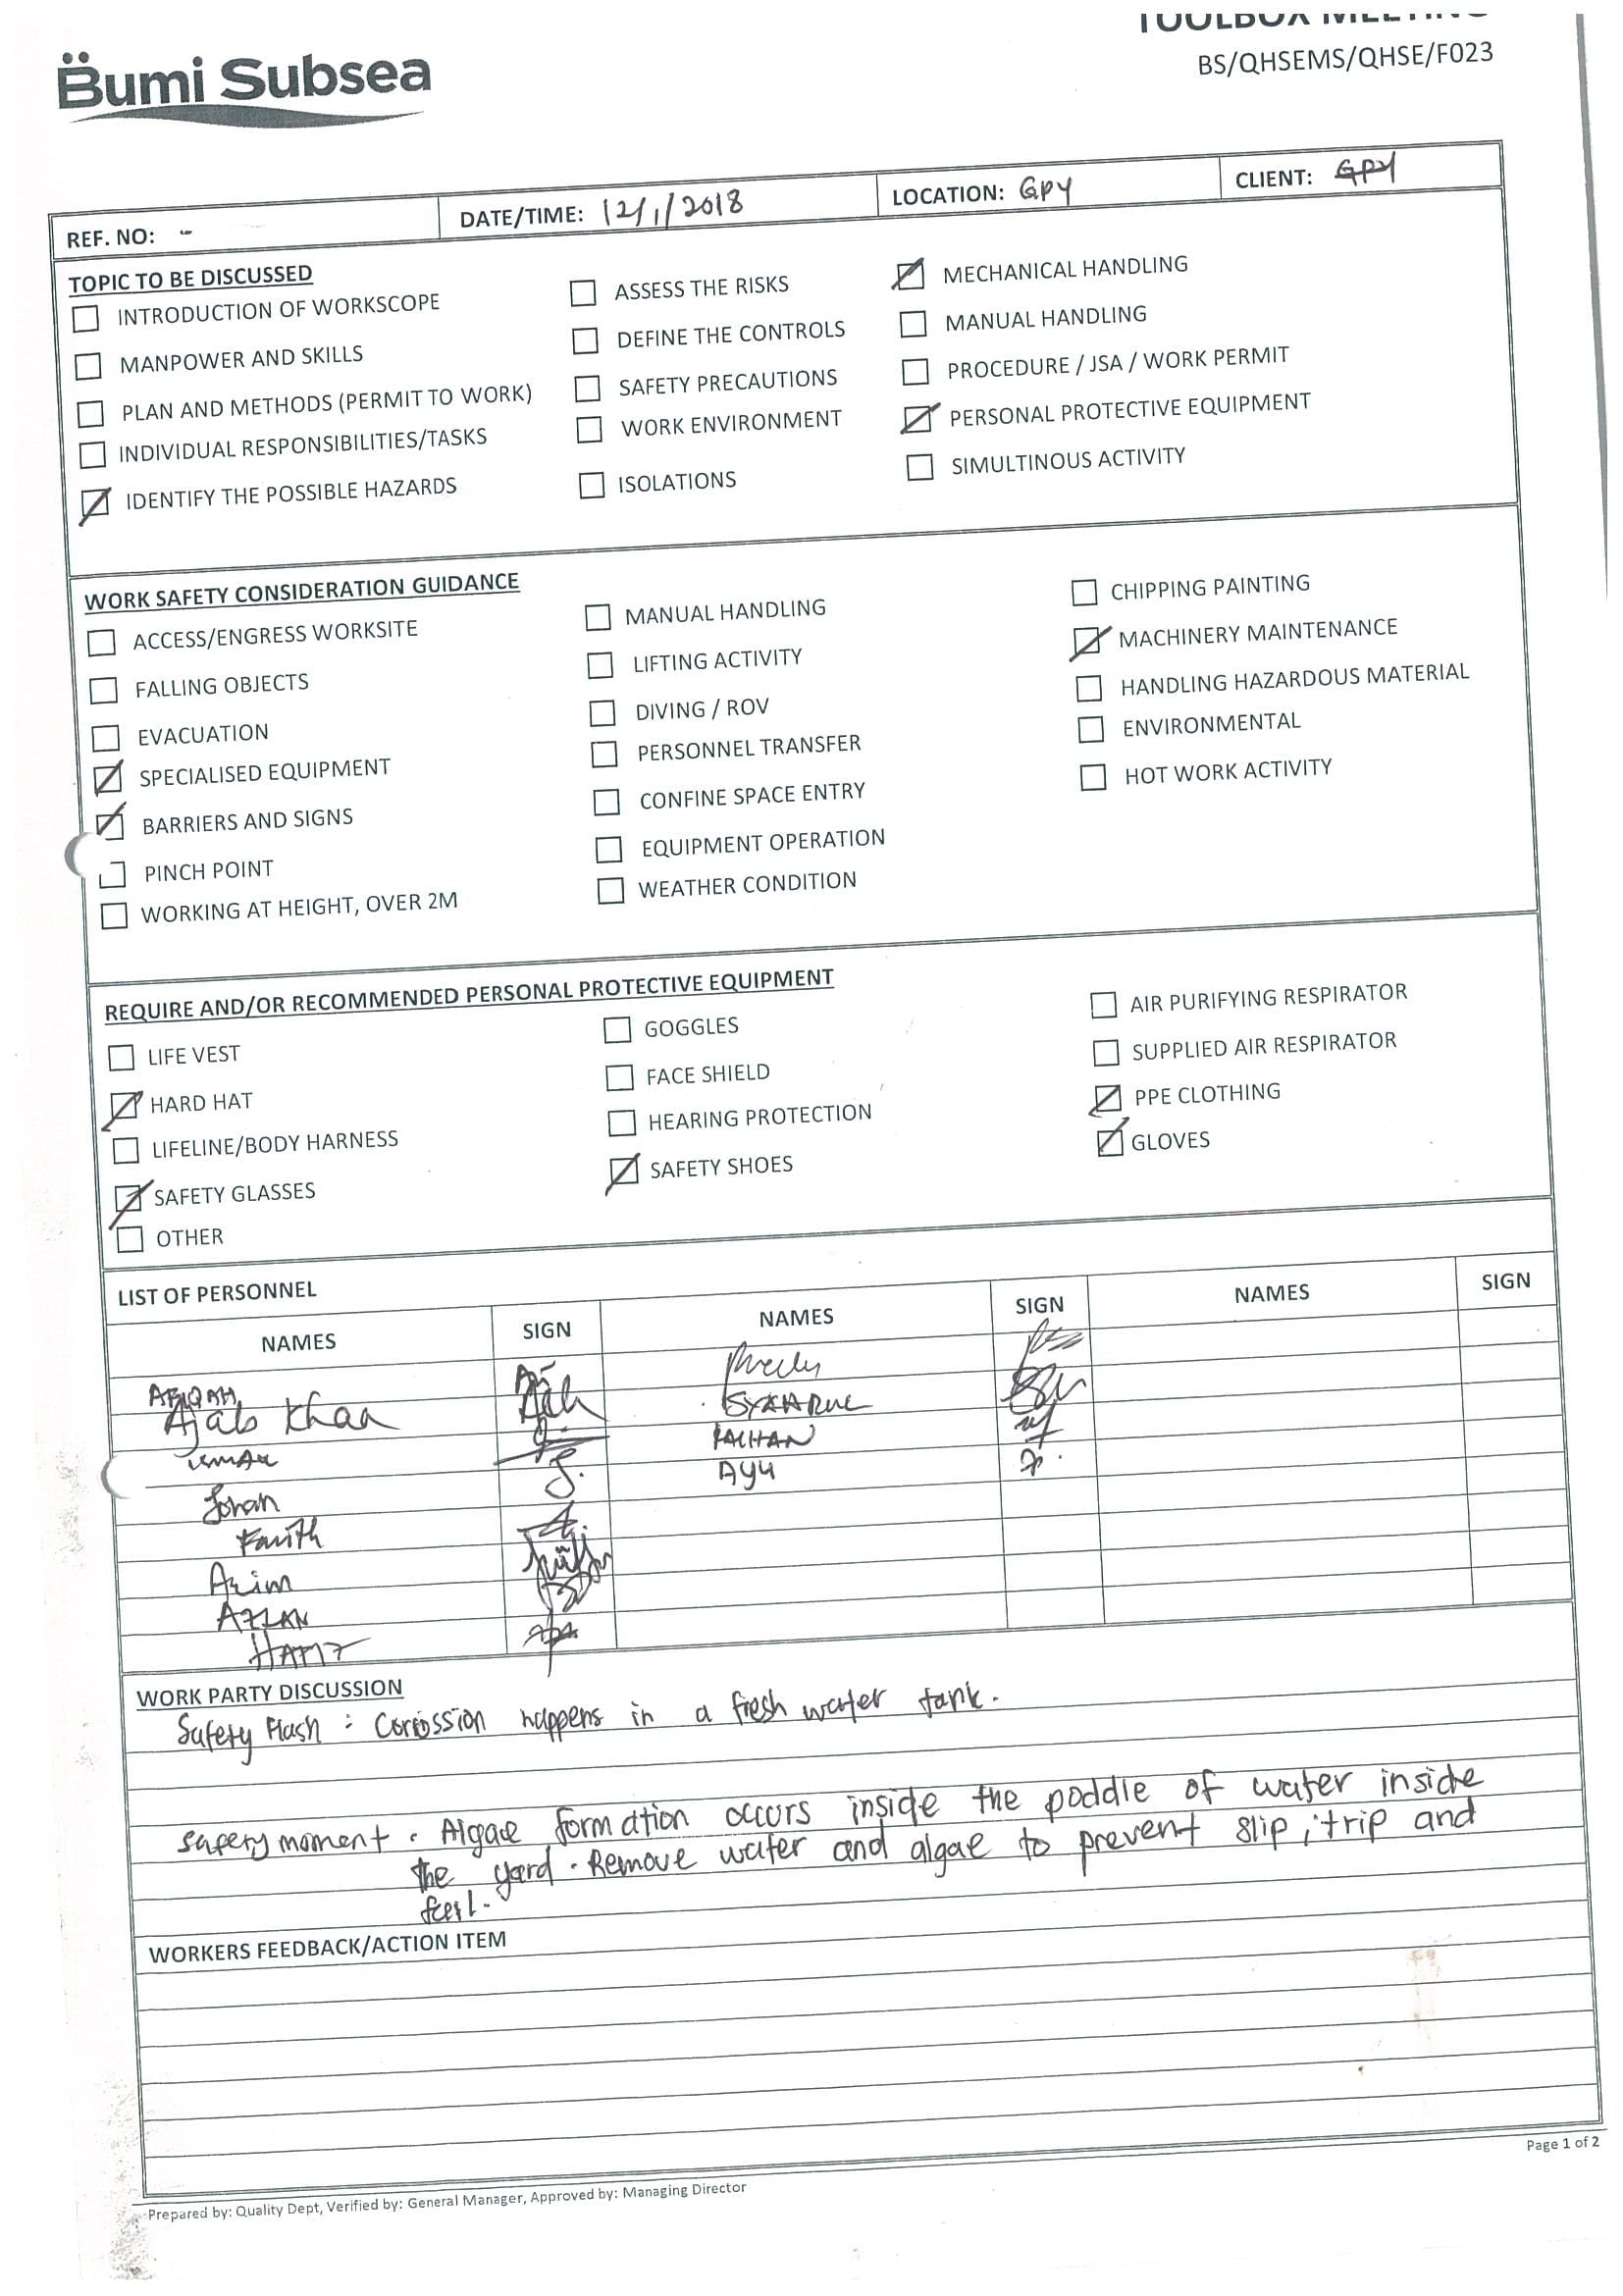 TOOLBOX MEETING
BS/QHSEMS/QHSE/F023
Bumi Subsea
REF. NO: -
DATE/TIME: 12/1/2018
LOCATION: GPY
CLIENT: GPY
TOPIC TO BE DISCUSSED
INTRODUCTION OF WORKSCOPE
MANPOWER AND SKILLS
PLAN AND METHODS (PERMIT TO WORK)
INDIVIDUAL RESPONSIBILITIES/TASKS
IDENTIFY THE POSSIBLE HAZARDS
ASSESS THE RISKS
DEFINE THE CONTROLS
SAFETY PRECAUTIONS
WORK ENVIRONMENT
ISOLATIONS
MECHANICAL HANDLING
MANUAL HANDLING
PROCEDURE / JSA / WORK PERMIT
PERSONAL PROTECTIVE EQUIPMENT
SIMULTINOUS ACTIVITY
WORK SAFETY CONSIDERATION GUIDANCE
ACCESS/ENGRESS WORKSITE
FALLING OBJECTS
EVACUATION
SPECIALISED EQUIPMENT
BARRIERS AND SIGNS
PINCH POINT
WORKING AT HEIGHT, OVER 2M
MANUAL HANDLING
LIFTING ACTIVITY
DIVING / ROV
PERSONNEL TRANSFER
CONFINE SPACE ENTRY
EQUIPMENT OPERATION
WEATHER CONDITION
CHIPPING PAINTING
MACHINERY MAINTENANCE
HANDLING HAZARDOUS MATERIAL
ENVIRONMENTAL
HOT WORK ACTIVITY
REQUIRE AND/OR RECOMMENDED PERSONAL PROTECTIVE EQUIPMENT
LIFE VEST
HARD HAT
LIFELINE/BODY HARNESS
SAFETY GLASSES
OTHER
GOGGLES
FACE SHIELD
HEARING PROTECTION
SAFETY SHOES
AIR PURIFYING RESPIRATOR
SUPPLIED AIR RESPIRATOR
PPE CLOTHING
GLOVES
LIST OF PERSONNEL
NAMES
SIGN
NAMES
SIGN
NAMES
SIGN
AFIQAH
Ajab Khan
Johan
Farith
Azim
AZLAN
SYAHRUL
RAIHAN
Ayu
WORK PARTY DISCUSSION
Safety Flash : Corrossion happens in a fresh water tank.
safety moment . Algae formation occurs inside the poddle of water inside
the yard . Remove water and algae to prevent slip, trip and
WORKERS FEEDBACK/ACTION ITEM
Page 1 of 2
Prepared by: Quality Dept, Verified by: General Manager, Approved by: Managing Director